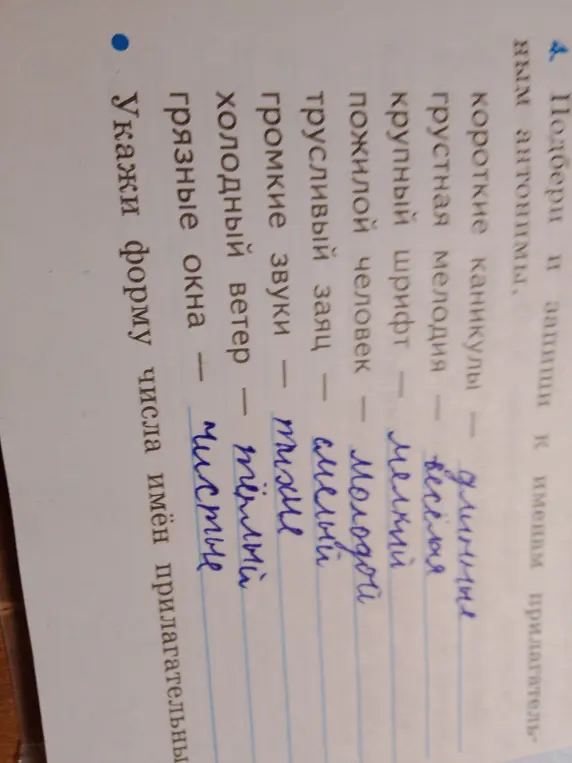 2. Подбери и запиши к именам прилагатель-
ным антонимы.
короткие каникулы — длинные
грустная мелодия — весёлая
крупный шрифт — мелкий
пожилой человек — молодой
трусливый заяц — смелый
громкие звуки — тихие
холодный ветер — тёплый
грязные окна — чистые
• Укажи форму числа имён прилагательны